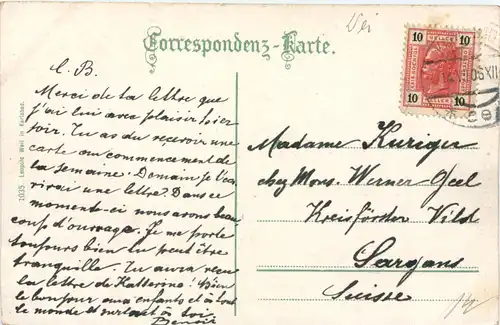 Correspondenz-Karte.
C. B.
Merci de ta lettre que
j'ai lue avec plaisir hier
soir. Tu as du reçevoir une
carte au commencement de
la semaine. Demain je t'éc
rirai une lettre? Dans ce
moment-ci nous avons beau
coup d'ouvrage. Je me porte
toujours bien tu peut être
tranquille. Tu aura reçu
la lettre de Katterine! Bien
le bonjour aux enfants et à tout
le monde et surtout à toi.
Benoit
Madame Kuriger
chez Mons. Werner Geel
Kreisförster Vild
Sargans
Suisse
1035. Leopold Weil in Karlsbad.
10 10
10 10
HELLER HELLER
05 XII